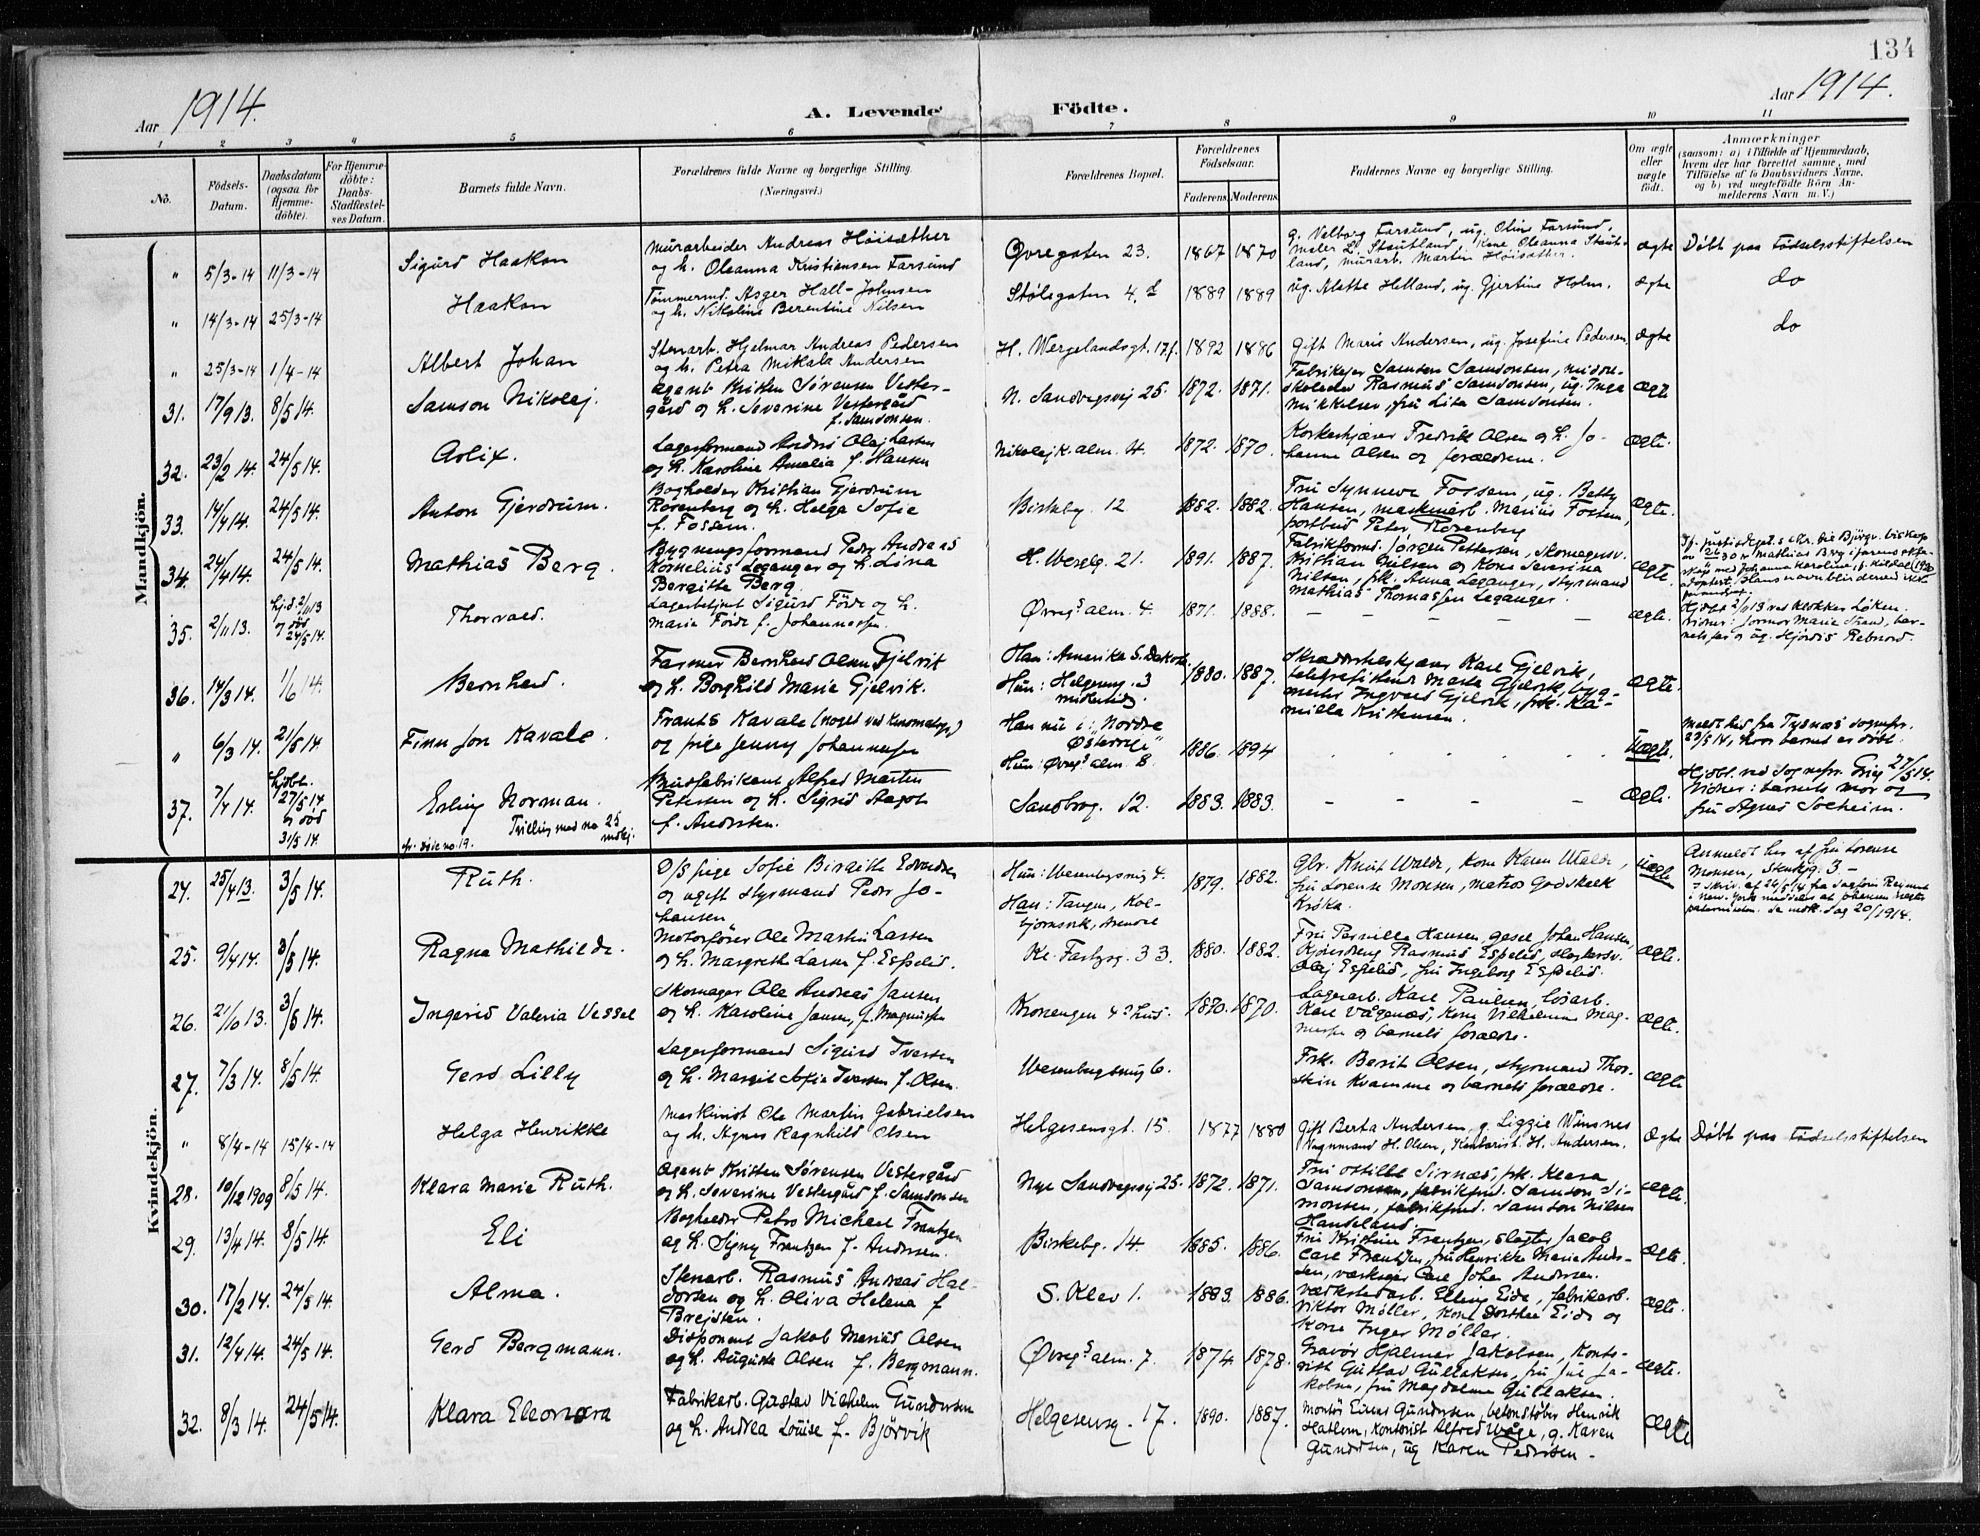 134
Aar 1914.
A. Levende Födte.
Aar 1914.
1 2 3 4 5 6 7 8 9 10 11
No.
Födsels-Datum.
Daabsdatum (ogsaa for Hjemme-döbte).
For Hjemme-döbte: Daabs-Stadfæstel-ses Datum.
Barnets fulde Navn.
Forældrenes fulde Navne og borgerlige Stilling. (Næringsvei.)
Forældrenes Bopæl.
Forældrenes Födselsaar.
Faderens Moderens
Faddernes Navne og borgerlige Stilling.
Om ægte eller uægte födt.
Anmærkninger
(saasom: a) i Tilfælde af Hjemmedaab,
hvem der har forrettet samme, med
Tilföielse af to Daabsvidners Navne,
og b) ved uægtefödte Börn An-
melderens Navn m. V.)
Mandkjön.
" 5/3-14 11/3-14 Sigurd Haakon
Murarbeider Andreas Höisæther
og h. Oleanna Kristiansen Farsund
Øvregaten 23. 1867 1870
g. Valborg Farsund, ug. Oline Farsund,
maler L. Stautland, Kone Oleanna Staut-
land, murarb. Martin Höisæther.
ægte Döbt paa Födselsstiftelsen
" 14/3-14 25/3-14 Haakon
Tømmermd. Asger Hall-Johnsen
og h. Nikoline Berentine Nilsen
Stølegaten 4, d 1889 1889 ug. Alette Helland, ug. Gjertine Holm, ægte do
" 25/3-14 1/4-14 Albert Johan
Stenarb. Hjalmar Andreas Pedersen
og h. Petra Mikala Andersen
H. Wergelandsgt. 17 f. 1892 1886 Gift Marie Andersen, ug. Josefine Pedersen ægte do
31. 17/9 13. 8/5 14. Samson Nikolaj
Agent Kristen Sørensen Vester-
gård og h. Severine Vestergård
f. Samsonsen.
N. Sandvegsvej 25. 1872. 1871.
Fabrikejer Samson Samsonsen,
skoleelev Rasmus Samsonsen, ug. Inga
Mikkelsen, fru Lisa Samsonsen.
ægte
32. 23/2 14. 24/5 14. Aolix.
Lagerformand Andrés Olaj Larsen
og h. Karoline Amalia f. Hansen
Nikolajk. alm. 4. 1872. 1870.
Korkeskjærer Fredrik Olsen og h. Jo-
hanne Olsen og forældrene.
ægte.
33. 14/4 14. 24/5 14. Anton Gjerdrum.
Bogholder Kristian Gjerdrum
Rosenberg og h. Helga Sofie
f. Fossem.
Birkebg. 12 1882. 1882.
Fru Synneve Fossem, ug. Betty
Hansen, maskinarb. Marius Fossem,
postbud Peter Rosenberg
ægte.
34. 24/4 14. 24/5 14. Mathias Berg.
Bygningsformand Peder Andreas
Kornelius Leganger og h. Lina
Bergitte Berg
H. Weselg. 21. 1891. 1887.
Fabrikformd. Jørgen Pettersen, Skomagersv.
Kristian Nilsen og Kone Severine
Nilsen, frk. Anna Leganger, styrmand
Mathias Thomassen Leganger.
ægte.
35. 2/11 13. hj.d. 2/11 13 og død 24/5 14. Thorvald.
Lagerbetjent Sigurd Förde og h.
Marie Förde f. Johannessen.
Øvregs alm. 4. 1871. 1888. – – – – ægte.
Hjdøbt 2/11 13 ved klokker Løken.
Vidner: formor Marie Strand, bar-
nets far og ug. Hjördis Rebnord.
36. 14/3 14. 1/6 14. Bernhard.
Farmer Bernhard Olsen Gjelvik
og h. Borghild Marie Gjelvik.
Han: Amerika S. Dakota
Hun: Helgeseng. 3
midlertidig.
1880. 1887.
Karl Gjelvik,
telefonistinde Marta Gjelvik, byg-
mester Ingvald Gjelvik, frk. Ka-
milla Kristensen.
ægte.
" 6/3 14. 21/5 14. Finn Jon Kavale.
Frants Kavale (noget ved kinematogr.)
og pige Jenny Johannessen
Han nu i: "Nordre
Østerrige"
Hun: Øvregs alm. 8.
1886. 1894 Uægte.
Meldt hid fra Tysnæs sognepr.
23/5 14, hvor barnet er døbt.
37. 7/4 14. Hjdbt. 27/5 14 og død 31/5 14. Erling Norman.
Tvilling med no 25
Brusfabrikant Alfred Marten
Petersen og h. Sigrid Aagot
f. Andersen.
Sandbrog. 12. 1883. 1883. – – – – ægte.
Hjdbt. ved Sognepr. Grieg 27/5 14.
Vidner: barnets mor og
fru Agnes Solheim.
Kvindekjön.
24. 25/4 13. 3/5 14. Ruth.
D/s pige Sofie Birgitte Edvardsen
og ugift styrmand Peder Jo-
hansen
Hun: Wesenbergsmug 4.
Han: Tangen, Kol-
bjørnsvik, Arendal
1879. 1882.
Gbr. Knut Walde, kone Karen Walde,
fru Lorense Monsen, matros Godskalk
Kråka.
Uægte
Anmeldt her af fru Lorense
Monsen, Stenkjg. 3 –
25. 9/4 14. 3/5 14. Ragna Mathilde.
Motorfører Ole Martin Larsen
og h. Margrethe Larsen f. Espelid.
Kl. Farbrog. 33. 1880. 1882.
Fru Pernille Hansen, gesel Johan Hansen,
Rasmus Espelid,
Olaj Espelid, fru Ingeborg Espelid.
ægte.
26. 21/10 13. 3/5 14. Ingerid Valeria Vessel
Skomager Ole Andreas Jansen
og h. Karoline Jansen, f. Magnussen
Kronengen 4de hus. 1870. 1870.
Lagerarb. Karl Paulsen, løsarb.
Karl Vågenæs, Kone Vilhelmine Mag-
nussen og barnets forældre.
ægte.
27. 7/3 14. 8/5 14. Gerd Lilly
Lagerformand Sigurd Iversen
og h. Margit Sofie Iversen f. Olsen.
Wesenbergsmug 6.
Frk. Berit Olsen, styrmand Thor-
stein Kvamme og barnets forældre.
ægte
" 8/4-14 15/4-14 Helga Henrikke
Maskinist Ole Martin Gabrielsen
og h. Agnes Ragnhild Olsen
Helgesensgt. 15. 1877 1880
Gift Berta Andersen, g. Lizzie Winsnes
Vognmand H. Olsen, Kontorist H. Andersen.
ægte Döbt paa Födselsstiftelsen
28. 10/12 1909 8/5 14. Klara Marie Ruth.
Agent Kristen Sørensen Vestergård
og h. Severine Vestergård f. Samsonsen
Nye Sandvegsvej 25. 1872. 1871.
Fru Ottilie Sirnæs, frk. Klara
Samsonsen, fabrikfmd. Samson Si-
monsen, fabrikfmd. Samson Nilsen
Haugeland.
ægte.
29. 13/4 14. 8/5 14. Eli
Bogholder Petro Michael Frantzen
og h. Signy Frantzen f. Andersen.
Birkebg. 14. 1885. 1886.
Fru Kristine Frantzen, slagter Jacob
Carl Frantzen, fru Henrikke Marie Ander-
sen, værkseier Carl Johan Andersen.
ægte.
30. 17/2 14. 24/5 14. Alma.
Stenarb. Rasmus Andreas Hal-
vorsen og h. Oliva Helena f.
Brejsten.
S. Klev 1. 1883. 1886.
Værkstedarb. Elling Eide, fabrikarb.
Viktor Møller, Kone Dorthea Eide og
Kone Inger Møller.
ægte.
31. 12/4 14. 24/5 14. Gerd Bergmann.
Disponent Jakob Marius Olsen
og h. Augusta Olsen f. Bergmann.
Øvregs alm. 7. 1874 1878.
Gravør Hjalmar Jakobsen, Konto-
rist Gustav Gullaksen, fru Julie Ja-
kobsen, fru Magdalene Gullaksen.
ægte.
32. 8/3 14. 24/5 14. Klara Eleonora
Fabrikarb. Gustav Vilhelm Gundersen
og h. Andrea Louise f. Bjørvik
Helgeseng. 17. 1890. 1887.
Montør Einar Gundersen, betonstøber Henrik
Hatlem, kontorist Alfred Wåge, g. Karen
Gundersen, ug Karen Pedersen.
ægte